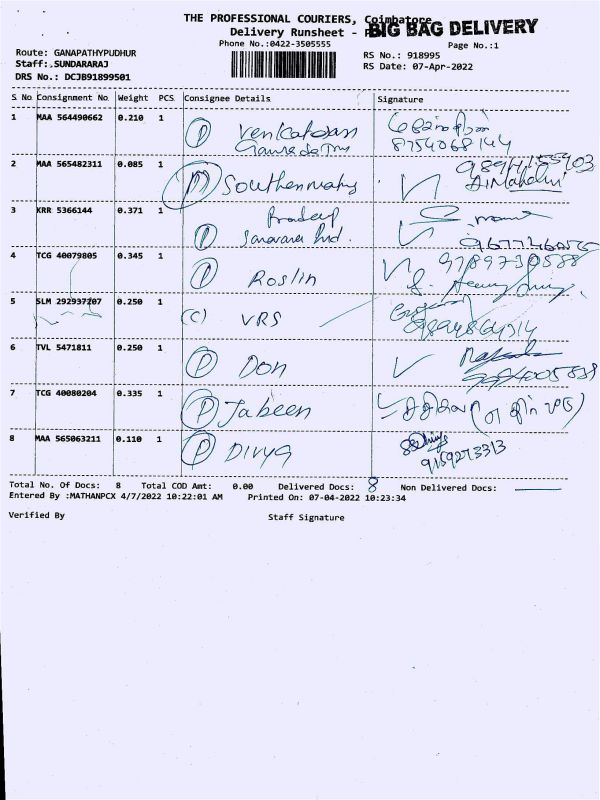 THE PROFESSIONAL COURIERS, Coimbatore
BIG BAG DELIVERY
Delivery Runsheet -
Phone No.:0422-3505555
Page No.:1
Route: GANAPATHYPUDHUR
RS No.: 918995
Staff:.SUNDARARAJ
RS Date: 07-Apr-2022
DRS No.: DCJB91899501
S No Consignment No. Weight PCS Consignee Details Signature
1 MAA 564490662 0.210 1 (P) Venkatesan
8754068144
2 MAA 565482311 0.085 1 (M)
3 KRR 5366144 0.371 1 Pradeep
(P)
4 TCG 40079805 0.345 1 (P) Roslin 9789730588
5 SLM 292937207 0.250 1 (C) VRS
6 TVL 5471811 0.250 1 (P) Don
7 TCG 40080204 0.335 1 (P) Jabeen
8 MAA 565063211 0.110 1 (P) Divya
9159273313
Total No. Of Docs: 8 Total COD Amt: 0.00 Delivered Docs: 8 Non Delivered Docs:
Entered By :MATHANPCX 4/7/2022 10:22:01 AM Printed On: 07-04-2022 10:23:34
Verified By Staff Signature